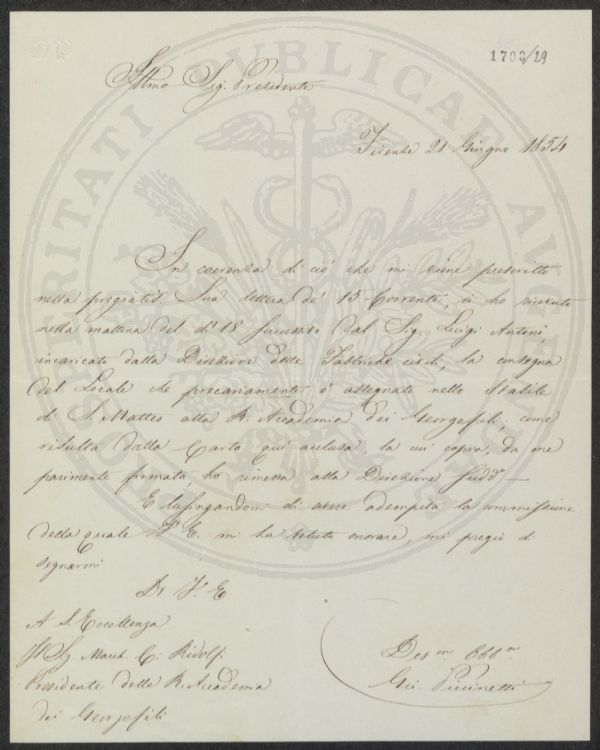 1703/29
Illmo Sig. Presidente
Firenze 21 Giugno 1854
In coerenza di ciò che mi viene prescritto
nella pregiatis. Sua lettera de' 15 Corrente, io ho ricevuto
nella mattina del dì 18 successivo dal Sig. Luigi Antoni,
incaricato dalla Direzione delle Fabbriche civili, la consegna
del Locale che precariamente è assegnato nello Stabile
di S. Matteo alla R. Accademia dei Georgofili, come
risulta dalla Carta quì acclusa, la cui copia, da me
parimente firmata, ho rimessa alla Direzione sudda
E lusingandomi di avere adempita la commissione
della quale V. E. mi ha voluto onorare, mi pregio di
segnarmi
Di V. E
A S. Eccellenza
Il Sig March. C. Ridolfi
Presidente della R. Accademia
dei Georgofili
Dev.m Obb.m
Piccinetti
PROSPERITATI PUBLICAE AUGENDAE